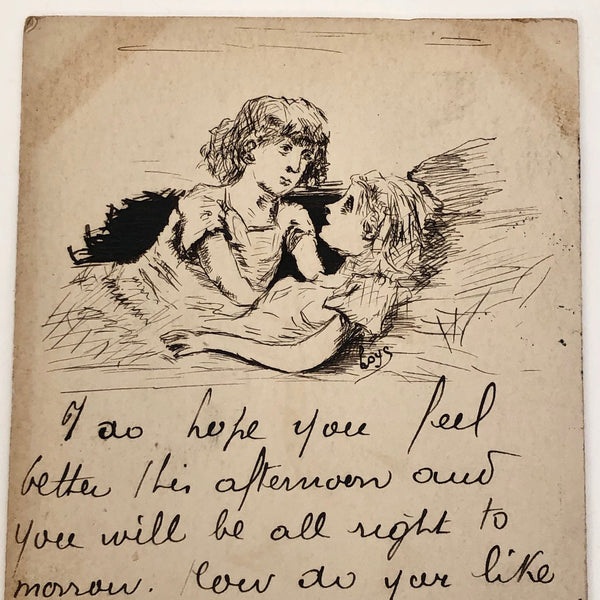 Roys
I do hope you feel
better this afternoon and
you will be all right to
morrow. How do you like